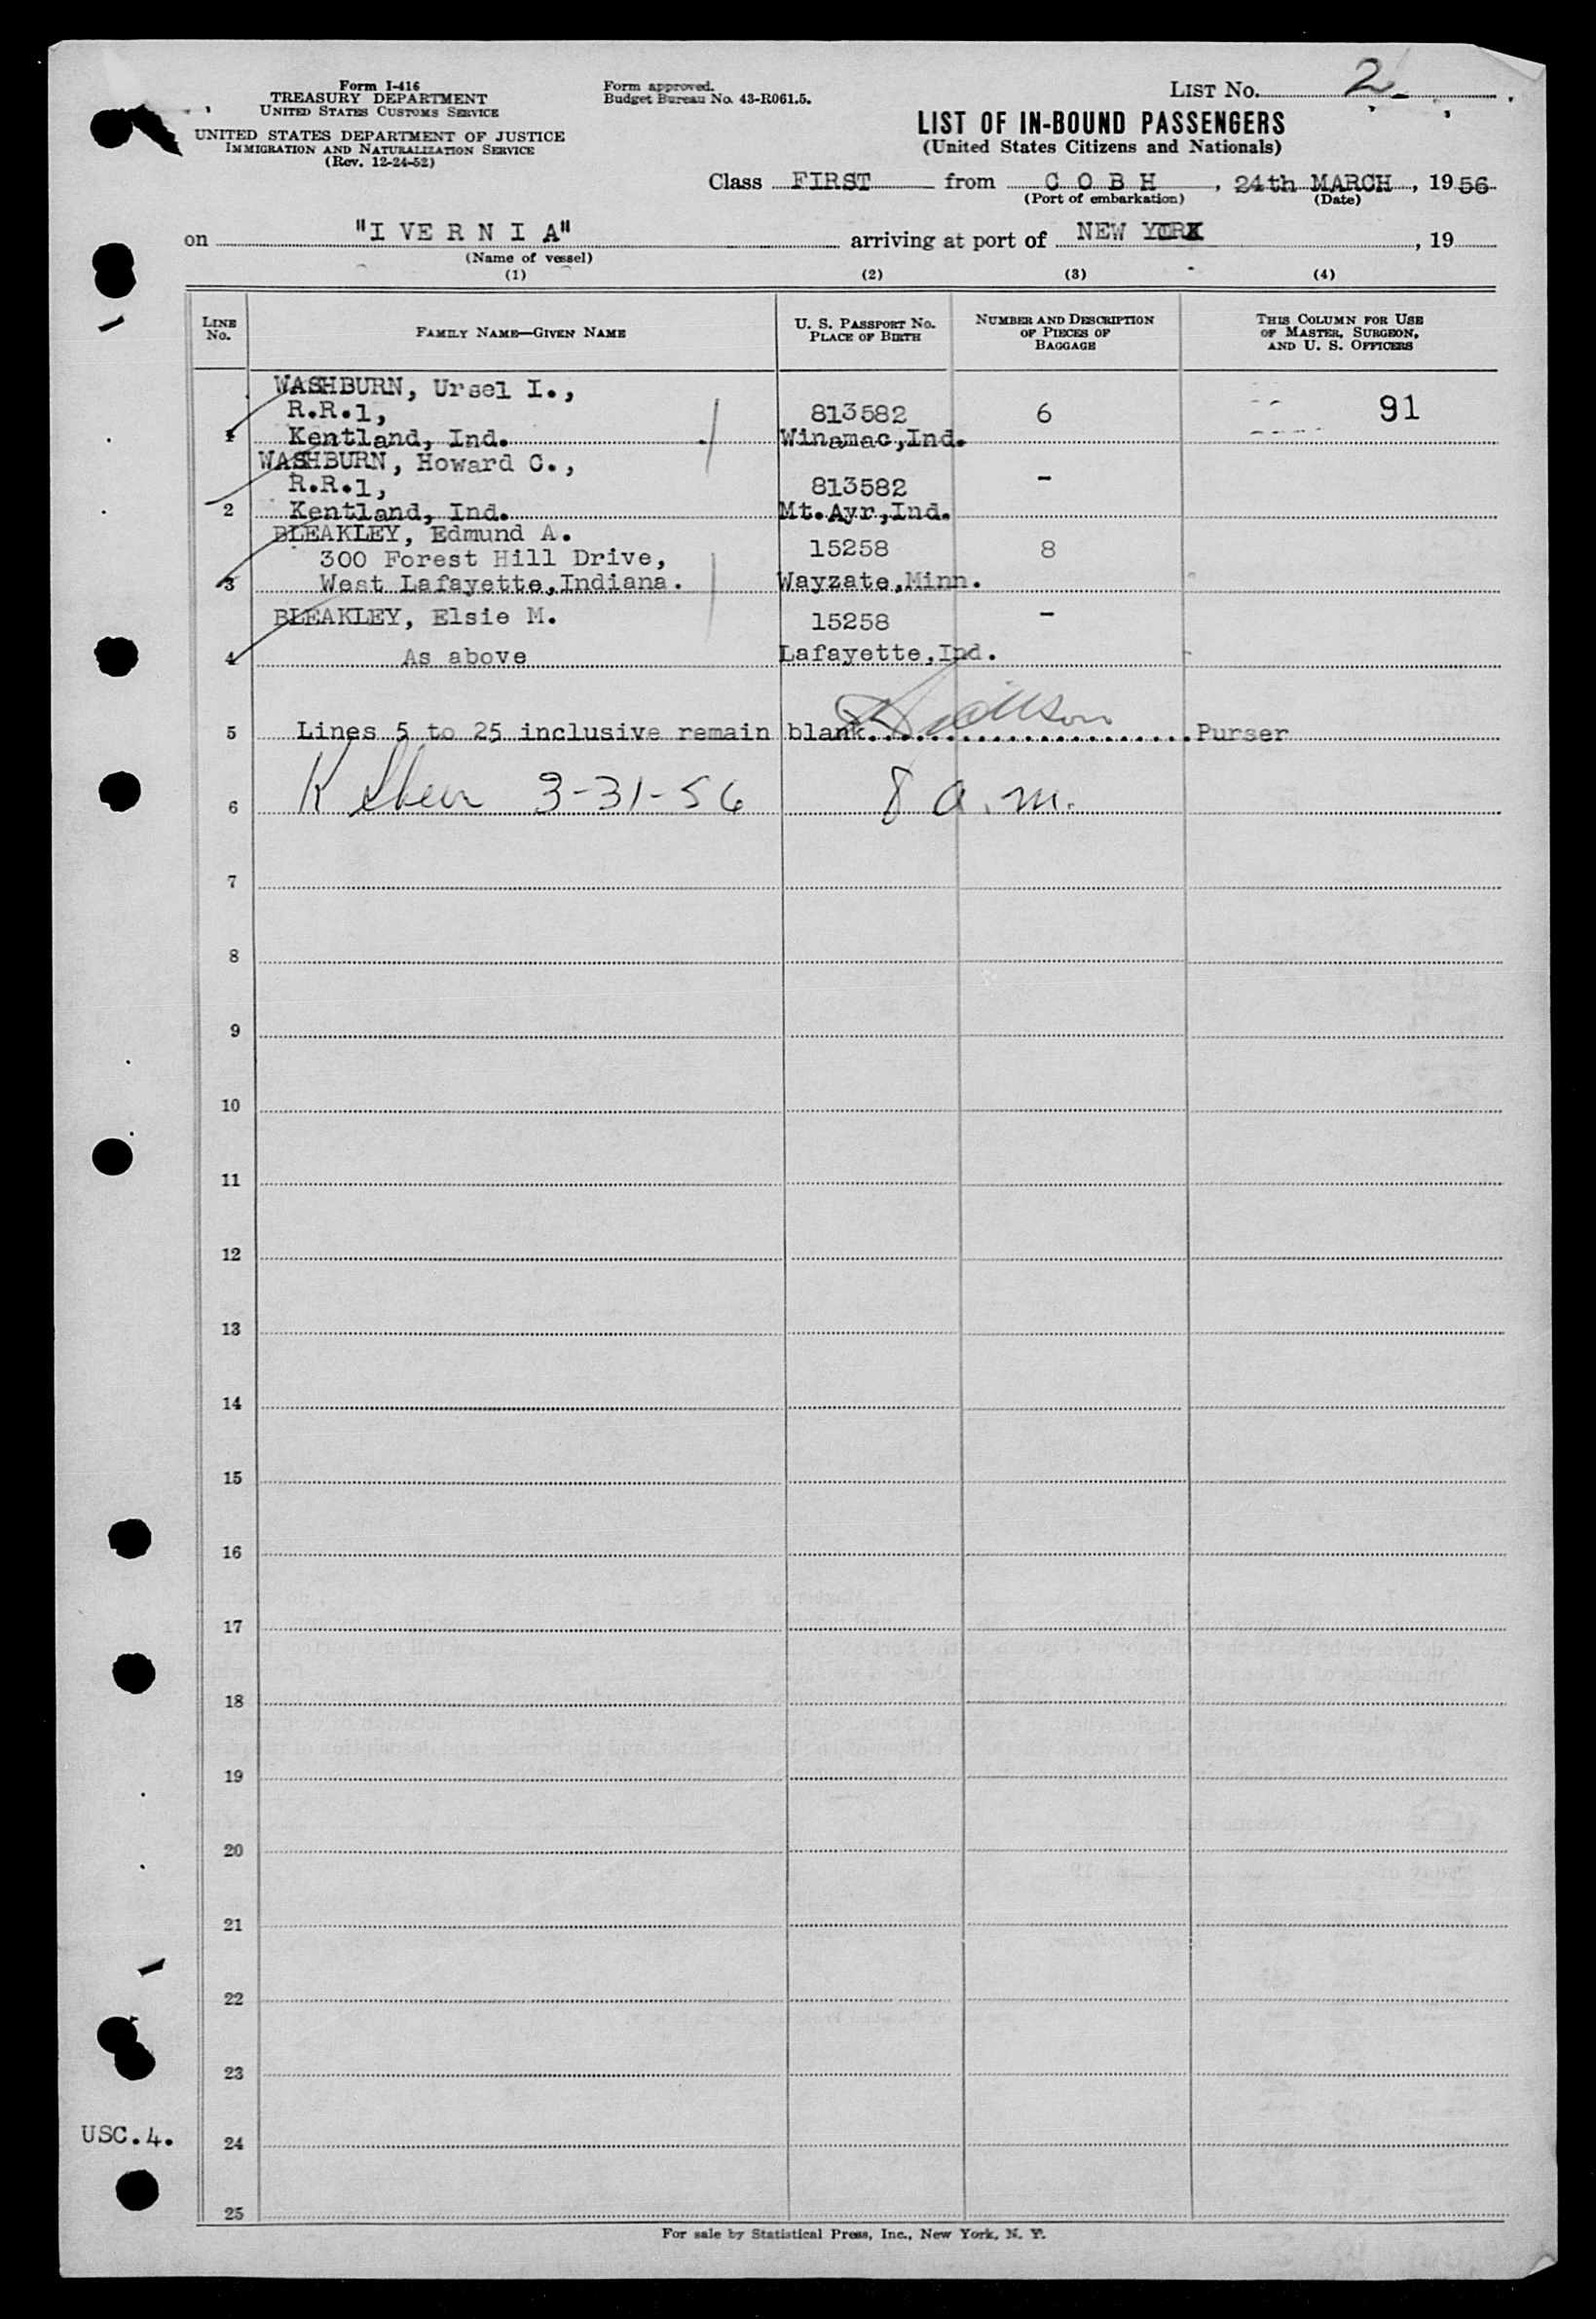 Form I-416
TREASURY DEPARTMENT
UNITED STATES CUSTOMS SERVICE
UNITED STATES DEPARTMENT OF JUSTICE
IMMIGRATION AND NATURALIZATION SERVICE
(Rev. 12-24-52)
Form approved.
Budget Bureau No. 43-R061.5.
LIST No. 2
LIST OF IN-BOUND PASSENGERS
(United States Citizens and Nationals)
Class FIRST from C O B H, 24th MARCH, 1956
(Port of embarkation) (Date)
on "I V E R N I A" arriving at port of NEW YORK, 19
(Name of vessel)
(1) (2) (3) (4)
LINE No.
FAMILY NAME—GIVEN NAME
U. S. PASSPORT No.
PLACE OF BIRTH
NUMBER AND DESCRIPTION
OF PIECES OF
BAGGAGE
THIS COLUMN FOR USE
OF MASTER, SURGEON,
AND U. S. OFFICERS
WASHBURN, Ursel I.,
R.R.1, 813582 6 91
1 Kentland, Ind. Winamac,Ind.
WASHBURN, Howard C.,
R.R.1, 813582 -
2 Kentland, Ind. Mt.Ayr,Ind.
BLEAKLEY, Edmund A.
300 Forest Hill Drive, 15258 8
3 West Lafayette,Indiana. Wayzate,Minn.
BLEAKLEY, Elsie M. 15258 -
4 As above Lafayette,Ind.
5 Lines 5 to 25 inclusive remain blank. Purser
6 3-31-56 8 a.m.
7
8
9
10
11
12
13
14
15
16
17
18
19
20
21
22
23
USC.4. 24
25
For sale by Statistical Press, Inc., New York, N. Y.